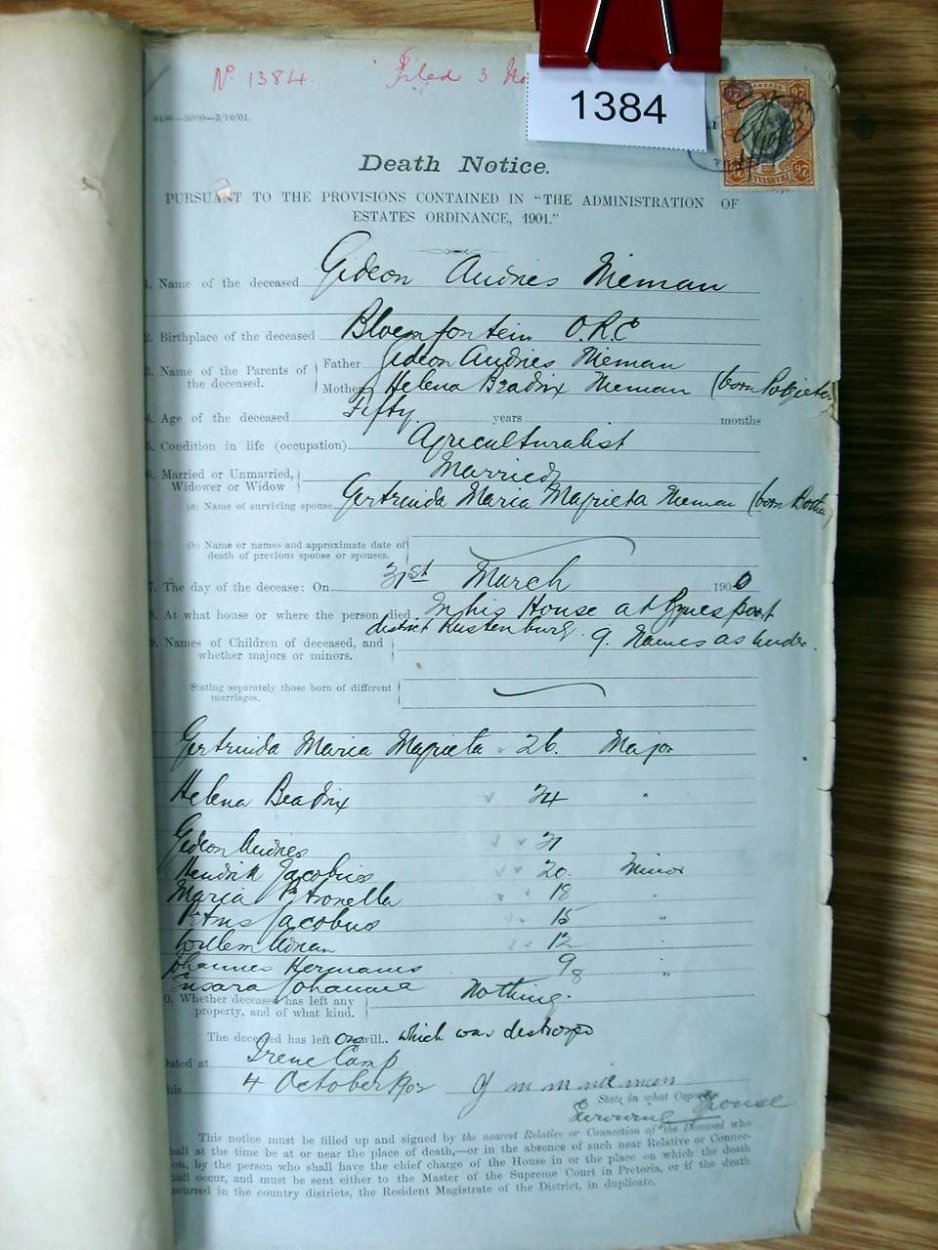 No 1384. Filed 3
1384
3/10/01.
Death Notice.
PURSUANT TO THE PROVISIONS CONTAINED IN "THE ADMINISTRATION OF
ESTATES ORDINANCE, 1901."
1. Name of the deceased Gideon Andries Nieman
2. Birthplace of the deceased Bloemfontein O.R.C
3. Name of the Parents of the deceased. Father Gideon Andries Nieman
Mother Helena Beadrix Nieman (born Potgieter
4. Age of the deceased Fifty years months
5. Condition in life (occupation) Agriculturalist
6. Married or Unmarried, Widower or Widow Married
(a) Name of surviving spouse Gertruida Maria Magrieta Nieman (born Botha)
(b) Name or names and approximate date of
death of previous spouse or spouses.
7. The day of the decease: On 31st March 1900
8. At what house or where the person died In his House at
district Rustenburg.
9. Names of Children of deceased, and 9. Names as under.
whether majors or minors.
Stating separately those born of different
marriages.
Gertruida Maria Magrieta 26. Major
Helena Beadrix 24 "
Gideon Andries 21
Hendrik Jacobus 20. Minor
Maria Petronella 18 "
Petrus Jacobus 15 "
Willem Adrian 12 "
Johannes Hermanus 9 "
Susara Johanna 8
10. Whether deceased has left any Nothing.
property, and of what kind.
The deceased has left One will. which was destroyed
Dated at Irene Camp
this 4 October G m m nieman
State in what Capacity
Surviving Spouse
This notice must be filled up and signed by the nearest Relative or Connection of the Deceased who
shall at the time be at or near the place of death,—or in the absence of such near Relative or Connec-
tion, by the person who shall have the chief charge of the House in or the place on which the death
shall occur, and must be sent either to the Master of the Supreme Court in Pretoria, or if the death
occurred in the country districts, the Resident Magistrate of the District, in duplicate.